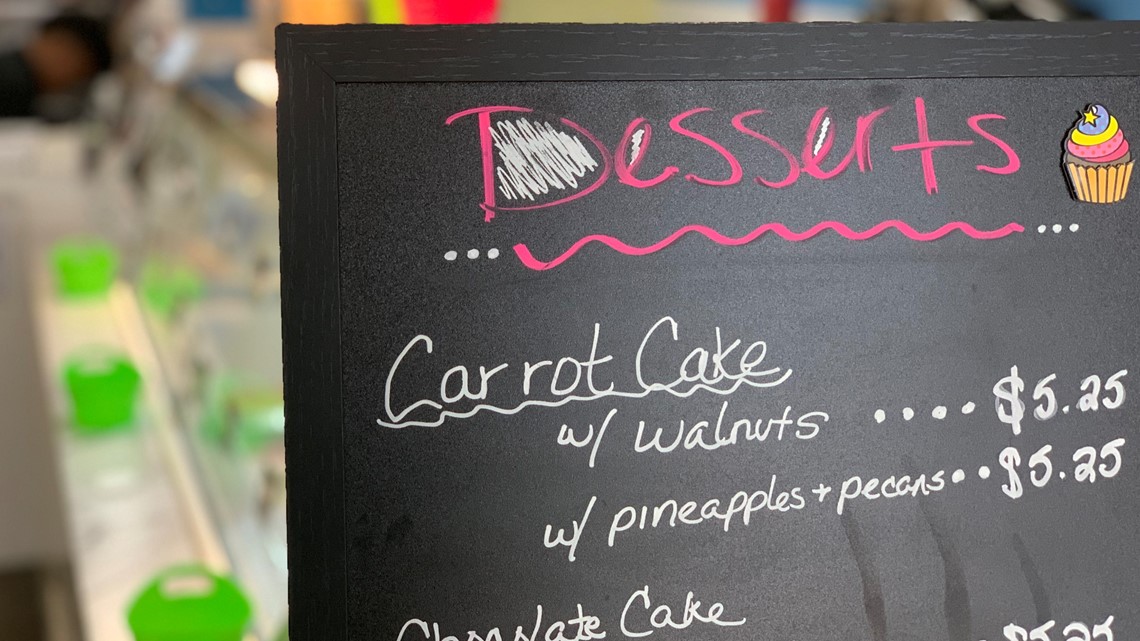 Desserts
Carrot Cake
w/ walnuts .... $5.25
w/ pineapples + pecans.. $5.25
Chocolate Cake
$5.25